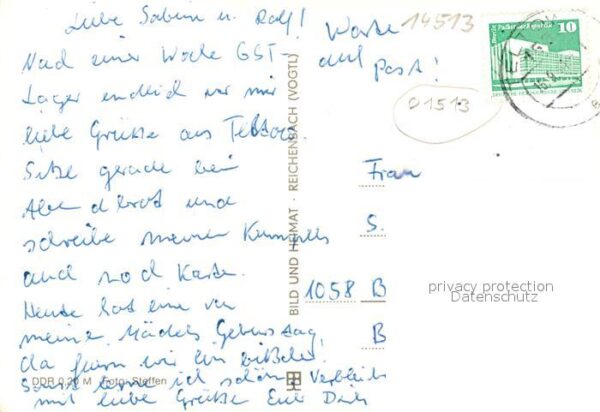 Liebe Sabine u. Ralf!
Nach einer Woche GST-
Lager endlich von mir
liebe Grüße aus
Sitze gerade beim
Abendbrot und
schreibe meinen Kumpels
auch noch Karten.
Heute hat eine von
meinen Mädels Geburtstag,
da feiern wir ein bißchen.
Sonst ich schön Verbleib
mit liebe Grüße Eure
Warte
auf
Post!
14513
01513
10
Frau
S.
1058 B
B
privacy protection
Datenschutz
BILD UND HEIMAT · REICHENBACH (VOGTL)
DDR 0,20 M Foto: Steffen